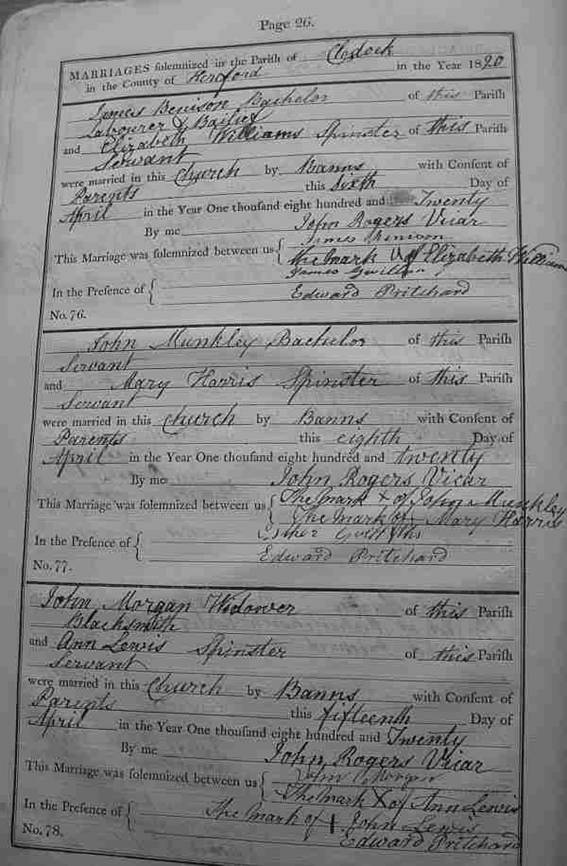 Page 26.
MARRIAGES solemnized in the Parish of Clodock
in the County of Hereford in the Year 1820
James Benison Bachelor of this Parish
Labourer & Bailief
and Elizabeth Williams Spinster of this Parish
Servant
were married in this Church by Banns with Consent of
Parents this Sixth Day of
April in the Year One thousand eight hundred and Twenty
By me John Rogers Vicar
This Marriage was solemnized between us { James Benison
the mark of Elizabeth William
In the Presence of { James Gwillim
Edward Pritchard
No. 76.
John Munkley Bachelor of this Parish
Servant
and Mary Harris Spinster of this Parish
Servant
were married in this Church by Banns with Consent of
Parents this eighth Day of
April in the Year One thousand eight hundred and twenty
By me John Rogers Vicar
This Marriage was solemnized between us { The mark x of John Munkley
The Mark of Mary Harris
In the Presence of { Esther Griffiths
Edward Pritchard
No. 77.
John Morgan Widower of this Parish
Blacksmith
and Ann Lewis Spinster of this Parish
Servant
were married in this Church by Banns with Consent of
Parents this fifteenth Day of
April in the Year One thousand eight hundred and Twenty
By me John Rogers Vicar
This Marriage was solemnized between us { John Morgan
The mark X of Ann Lewis
In the Presence of { The Mark of + John Lewis
Edward Pritchard
No. 78.